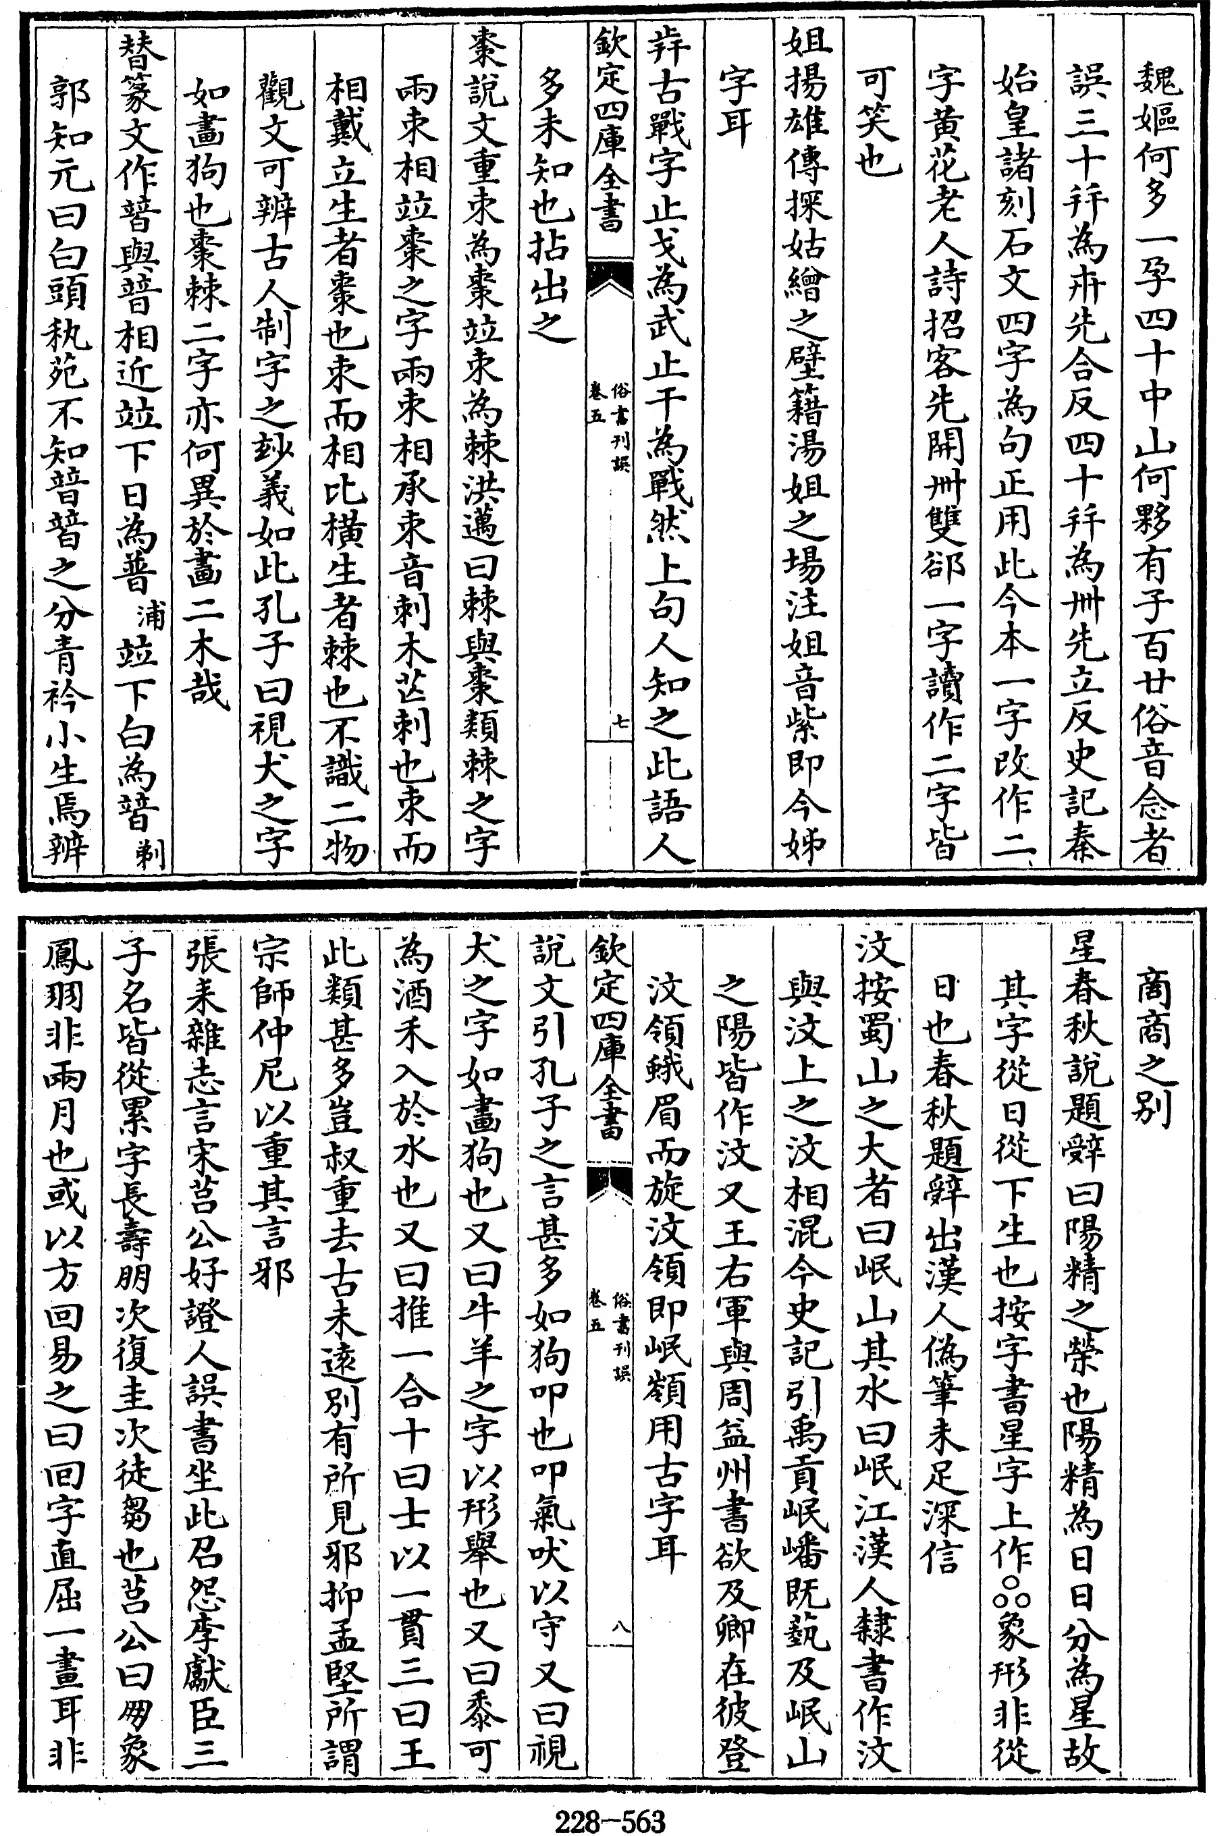 魏嫗何多一孕四十中山何夥有子百廿俗音念者
誤三十秆為卅先合反四十秆為卌先立反史記秦
始皇諸刻石文四字為句正用此今本一字改作二
字黄花老人詩招客先開卌雙郤一字讀作二字皆
可笑也
姐揚雄傳探姑繒之壁籍湯姐之場注姐音紫即今姊
字耳
𢦏古戰字止戈為武止干為戰然上句人知之此語人
欽定四庫全書
俗書刊誤
卷五
七
多未知也拈出之
棗說文重朿為棗竝朿為棘洪邁曰棘與棗類棘之字
兩朿相竝棗之字兩朿相承朿音刺木芒刺也朿而
相戴立生者棗也朿而相比橫生者棘也不識二物
觀文可辨古人制字之玅義如此孔子曰視犬之字
如畫狗也棗棘二字亦何異於畫二木哉
替篆文作暜與普相近竝下日為普浦竝下白為暜剃
郭知元曰白頭執苑不知普暜之分青衿小生焉辨
啇商之别
星春秋說題辭曰陽精之榮也陽精為日日分為星故
其字從日從下生也按字書星字上作○○○象形非從
日也春秋題辭出漢人偽筆未足深信
汶按蜀山之大者曰岷山其水曰岷江漢人隸書作汶
與汶上之汶相混今史記引禹貢岷嶓既蓺及岷山
之陽皆作汶又王右軍與周益州書欲及卿在彼登
汶領蛾眉而旋汶領即岷嶺用古字耳
欽定四庫全書
俗書刊誤
卷五
八
說文引孔子之言甚多如狗叩也叩氣吠以守又曰視
犬之字如畫狗也又曰牛羊之字以形舉也又曰黍可
為酒禾入於水也又曰推一合十曰士以一貫三曰王
此類甚多豈叔重去古未遠別有所見邪抑孟堅所謂
宗師仲尼以重其言邪
張耒雜志言宋莒公好證人誤書坐此召怨李獻臣三
子名皆從累字長壽朋次復圭次徒芻也莒公曰朋象
鳳羽非兩月也或以方回易之曰回字直屈一畫耳非
228-563